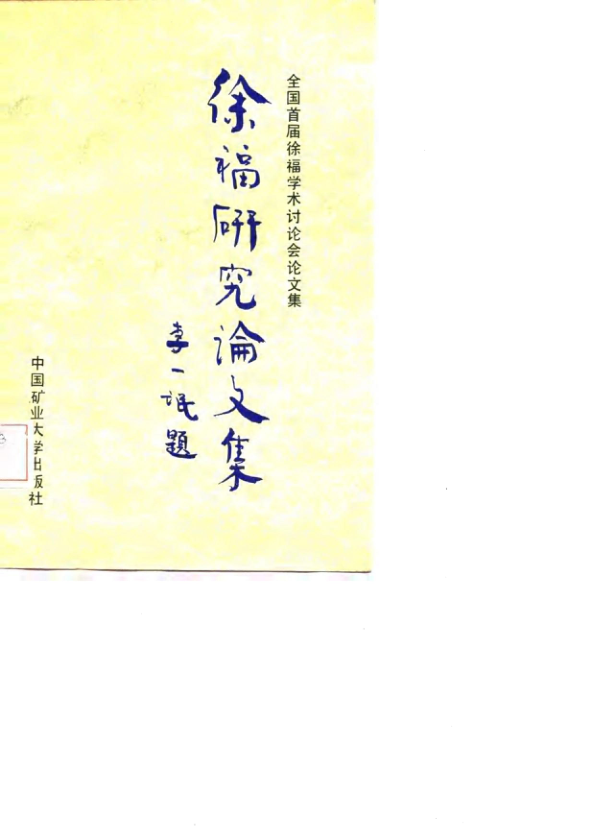 全国首届徐福学术讨论会论文集
徐福研究論文集
李一氓题
中国矿业大学出版社